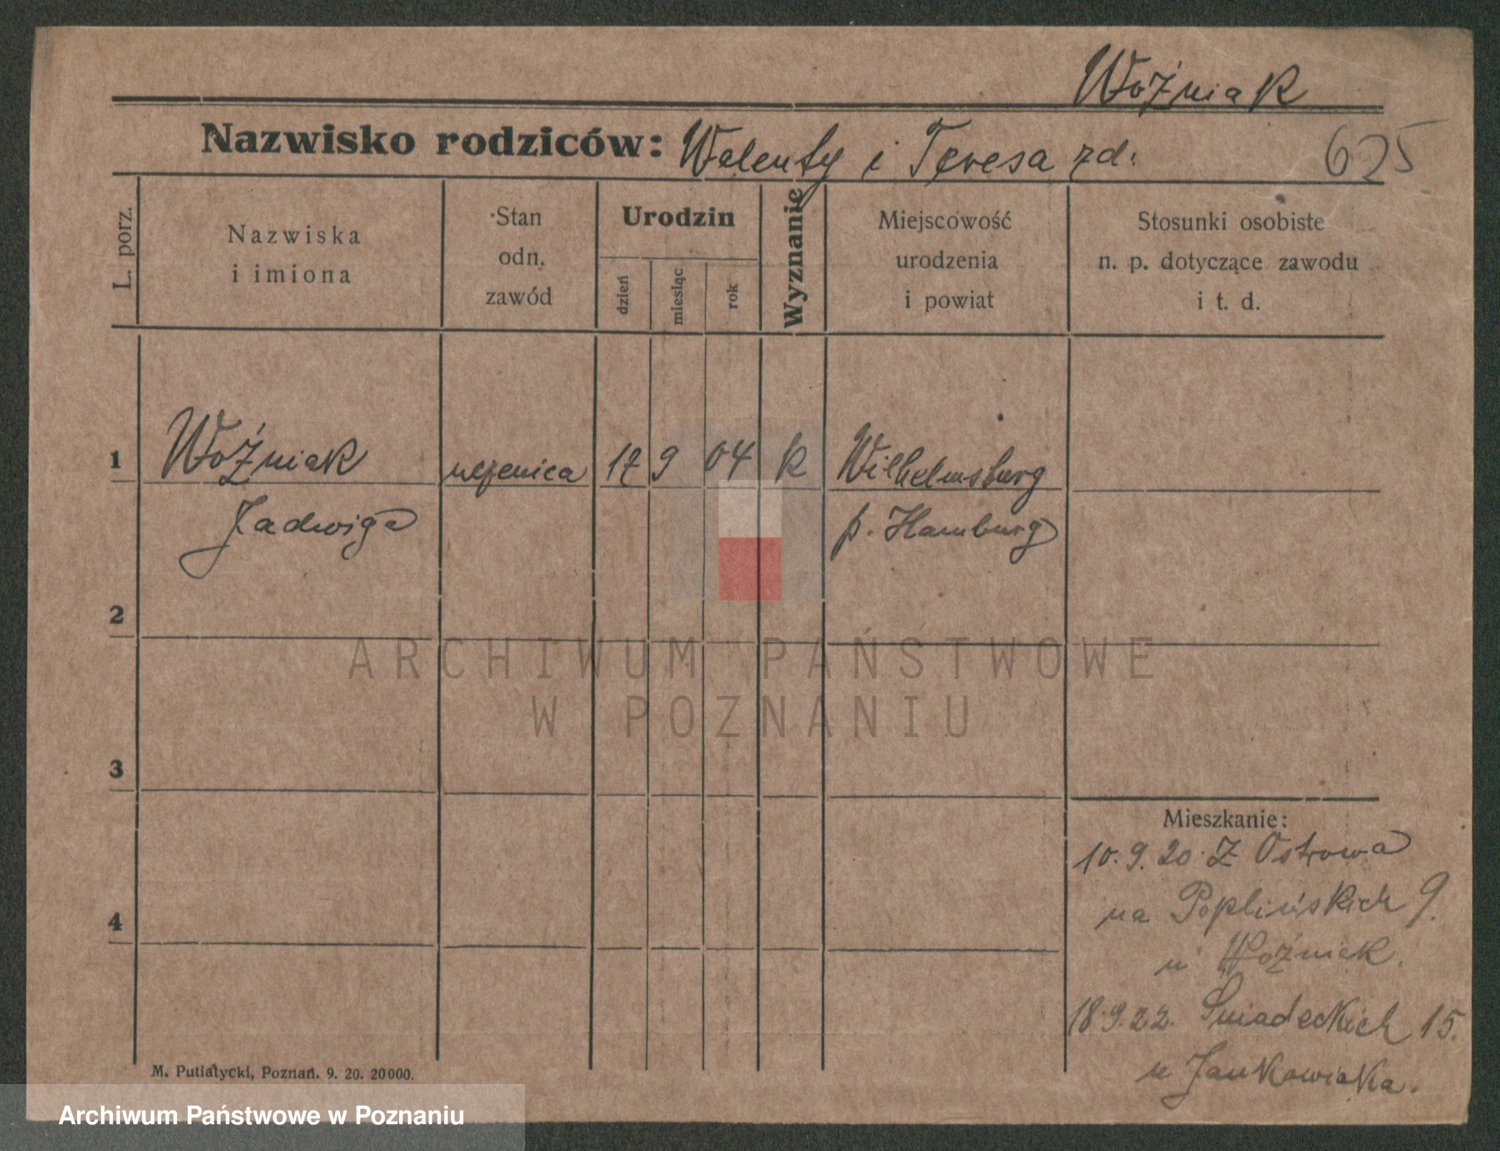 Woźniak
Nazwisko rodziców: Walenty i Teresa zd.
625
L. porz.
Nazwiska
i imiona
Stan
odn.
zawód
Urodzin
dzień
miesiąc
rok
Wyznanie
Miejscowość
urodzenia
i powiat
Stosunki osobiste
n. p. dotyczące zawodu
i t. d.
1 Woźniak uczenica 17 9 04 k Wilhelmsburg
Jadwiga p. Hamburg
2
ARCHIWUM PAŃSTWOWE
W POZNANIU
3
Mieszkanie:
10.9.20. Z Ostrowa
na Poplińskich 9.
u Woźniak.
4
18.9.22. Śniadeckich 15.
u Jankowiaka.
M. Putiatycki, Poznań. 9. 20. 20000.
Archiwum Państwowe w Poznaniu